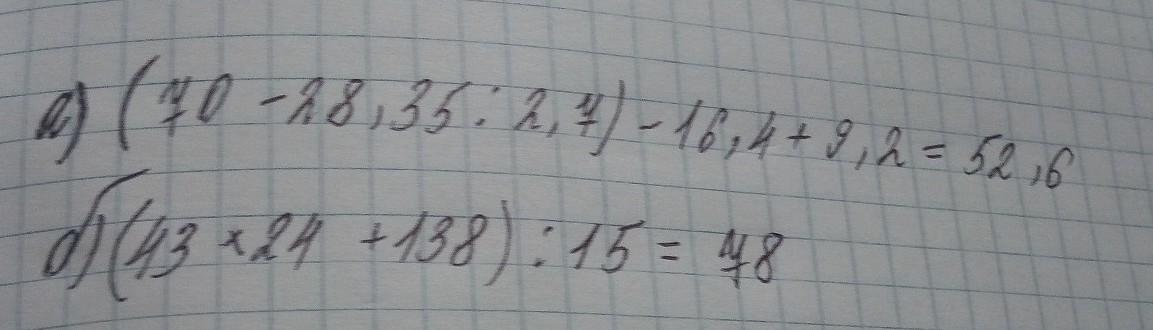 а) (70 - 28,35 : 2,7) - 16,4 + 9,2 = 52,6
б) (43 × 24 + 138) : 15 = 78